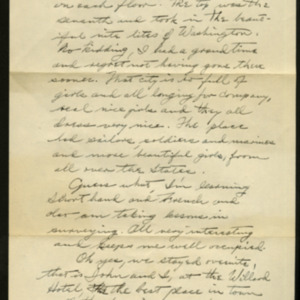 on each floor. The top was the
seventh and took in the beaut-
iful nite lites of Washington.
No kidding, I had a grand time
and regret not having gone there
sooner. That city is so full of
girls and all longing for company,
real nice girls and they all
dress very nice. The place
had sailors, soldiers and marines
and more beautiful girls, from
all over the States.
Guess what, I'm learning
Short hand and French and
also am taking lessons in
surveying. All very interesting
and keeps me well occupied.
Oh yes, we stayed overnite,
that is John and I, at the Willard
Hotel the best place in town